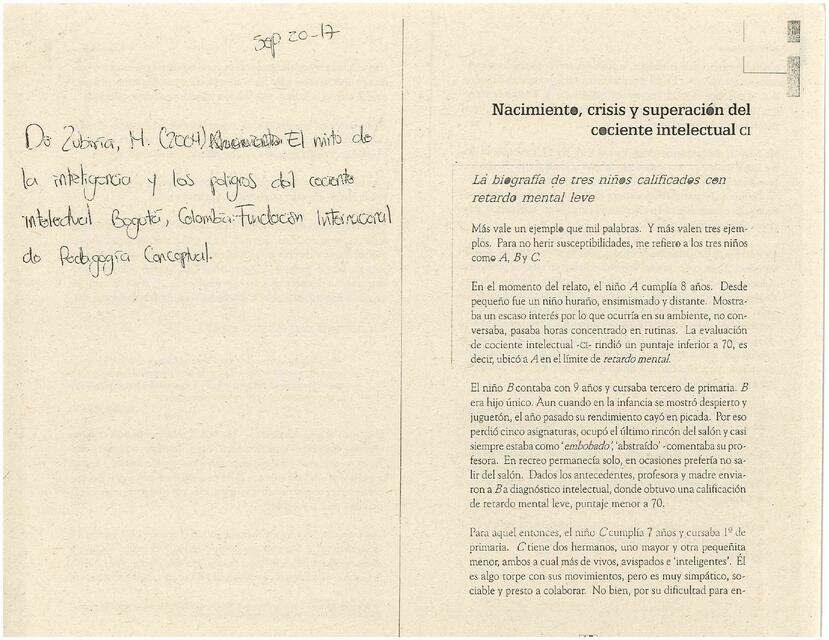 Sep 20-17
De Zubiría, M. (2004) El mito de
la inteligencia y los peligros del cociente
intelectual. Bogotá, Colombia: Fundación Internacional
de Pedagogía Conceptual.
Nacimiento, crisis y superación del
cociente intelectual CI
La biografía de tres niños calificados con
retardo mental leve
Más vale un ejemplo que mil palabras. Y más valen tres ejem-
plos. Para no herir susceptibilidades, me refiero a los tres niños
como A, B y C.
En el momento del relato, el niño A cumplía 8 años. Desde
pequeño fue un niño huraño, ensimismado y distante. Mostra-
ba un escaso interés por lo que ocurría en su ambiente, no con-
versaba, pasaba horas concentrado en rutinas. La evaluación
de cociente intelectual -CI- rindió un puntaje inferior a 70, es
decir, ubicó a A en el límite de retardo mental.
El niño B contaba con 9 años y cursaba tercero de primaria. B
era hijo único. Aun cuando en la infancia se mostró despierto y
juguetón, el año pasado su rendimiento cayó en picada. Por eso
perdió cinco asignaturas, ocupó el último rincón del salón y casi
siempre estaba como 'embobado', 'abstraído' -comentaba su pro-
fesora. En recreo permanecía solo, en ocasiones prefería no sa-
lir del salón. Dados los antecedentes, profesora y madre envia-
ron a B a diagnóstico intelectual, donde obtuvo una calificación
de retardo mental leve, puntaje menor a 70.
Para aquel entonces, el niño C cumplía 7 años y cursaba 1º de
primaria. C tiene dos hermanos, uno mayor y otra pequeñita
menor, ambos a cual más de vivos, avispados e 'inteligentes'. Él
es algo torpe con sus movimientos, pero es muy simpático, so-
ciable y presto a colaborar. No bien, por su dificultad para en-